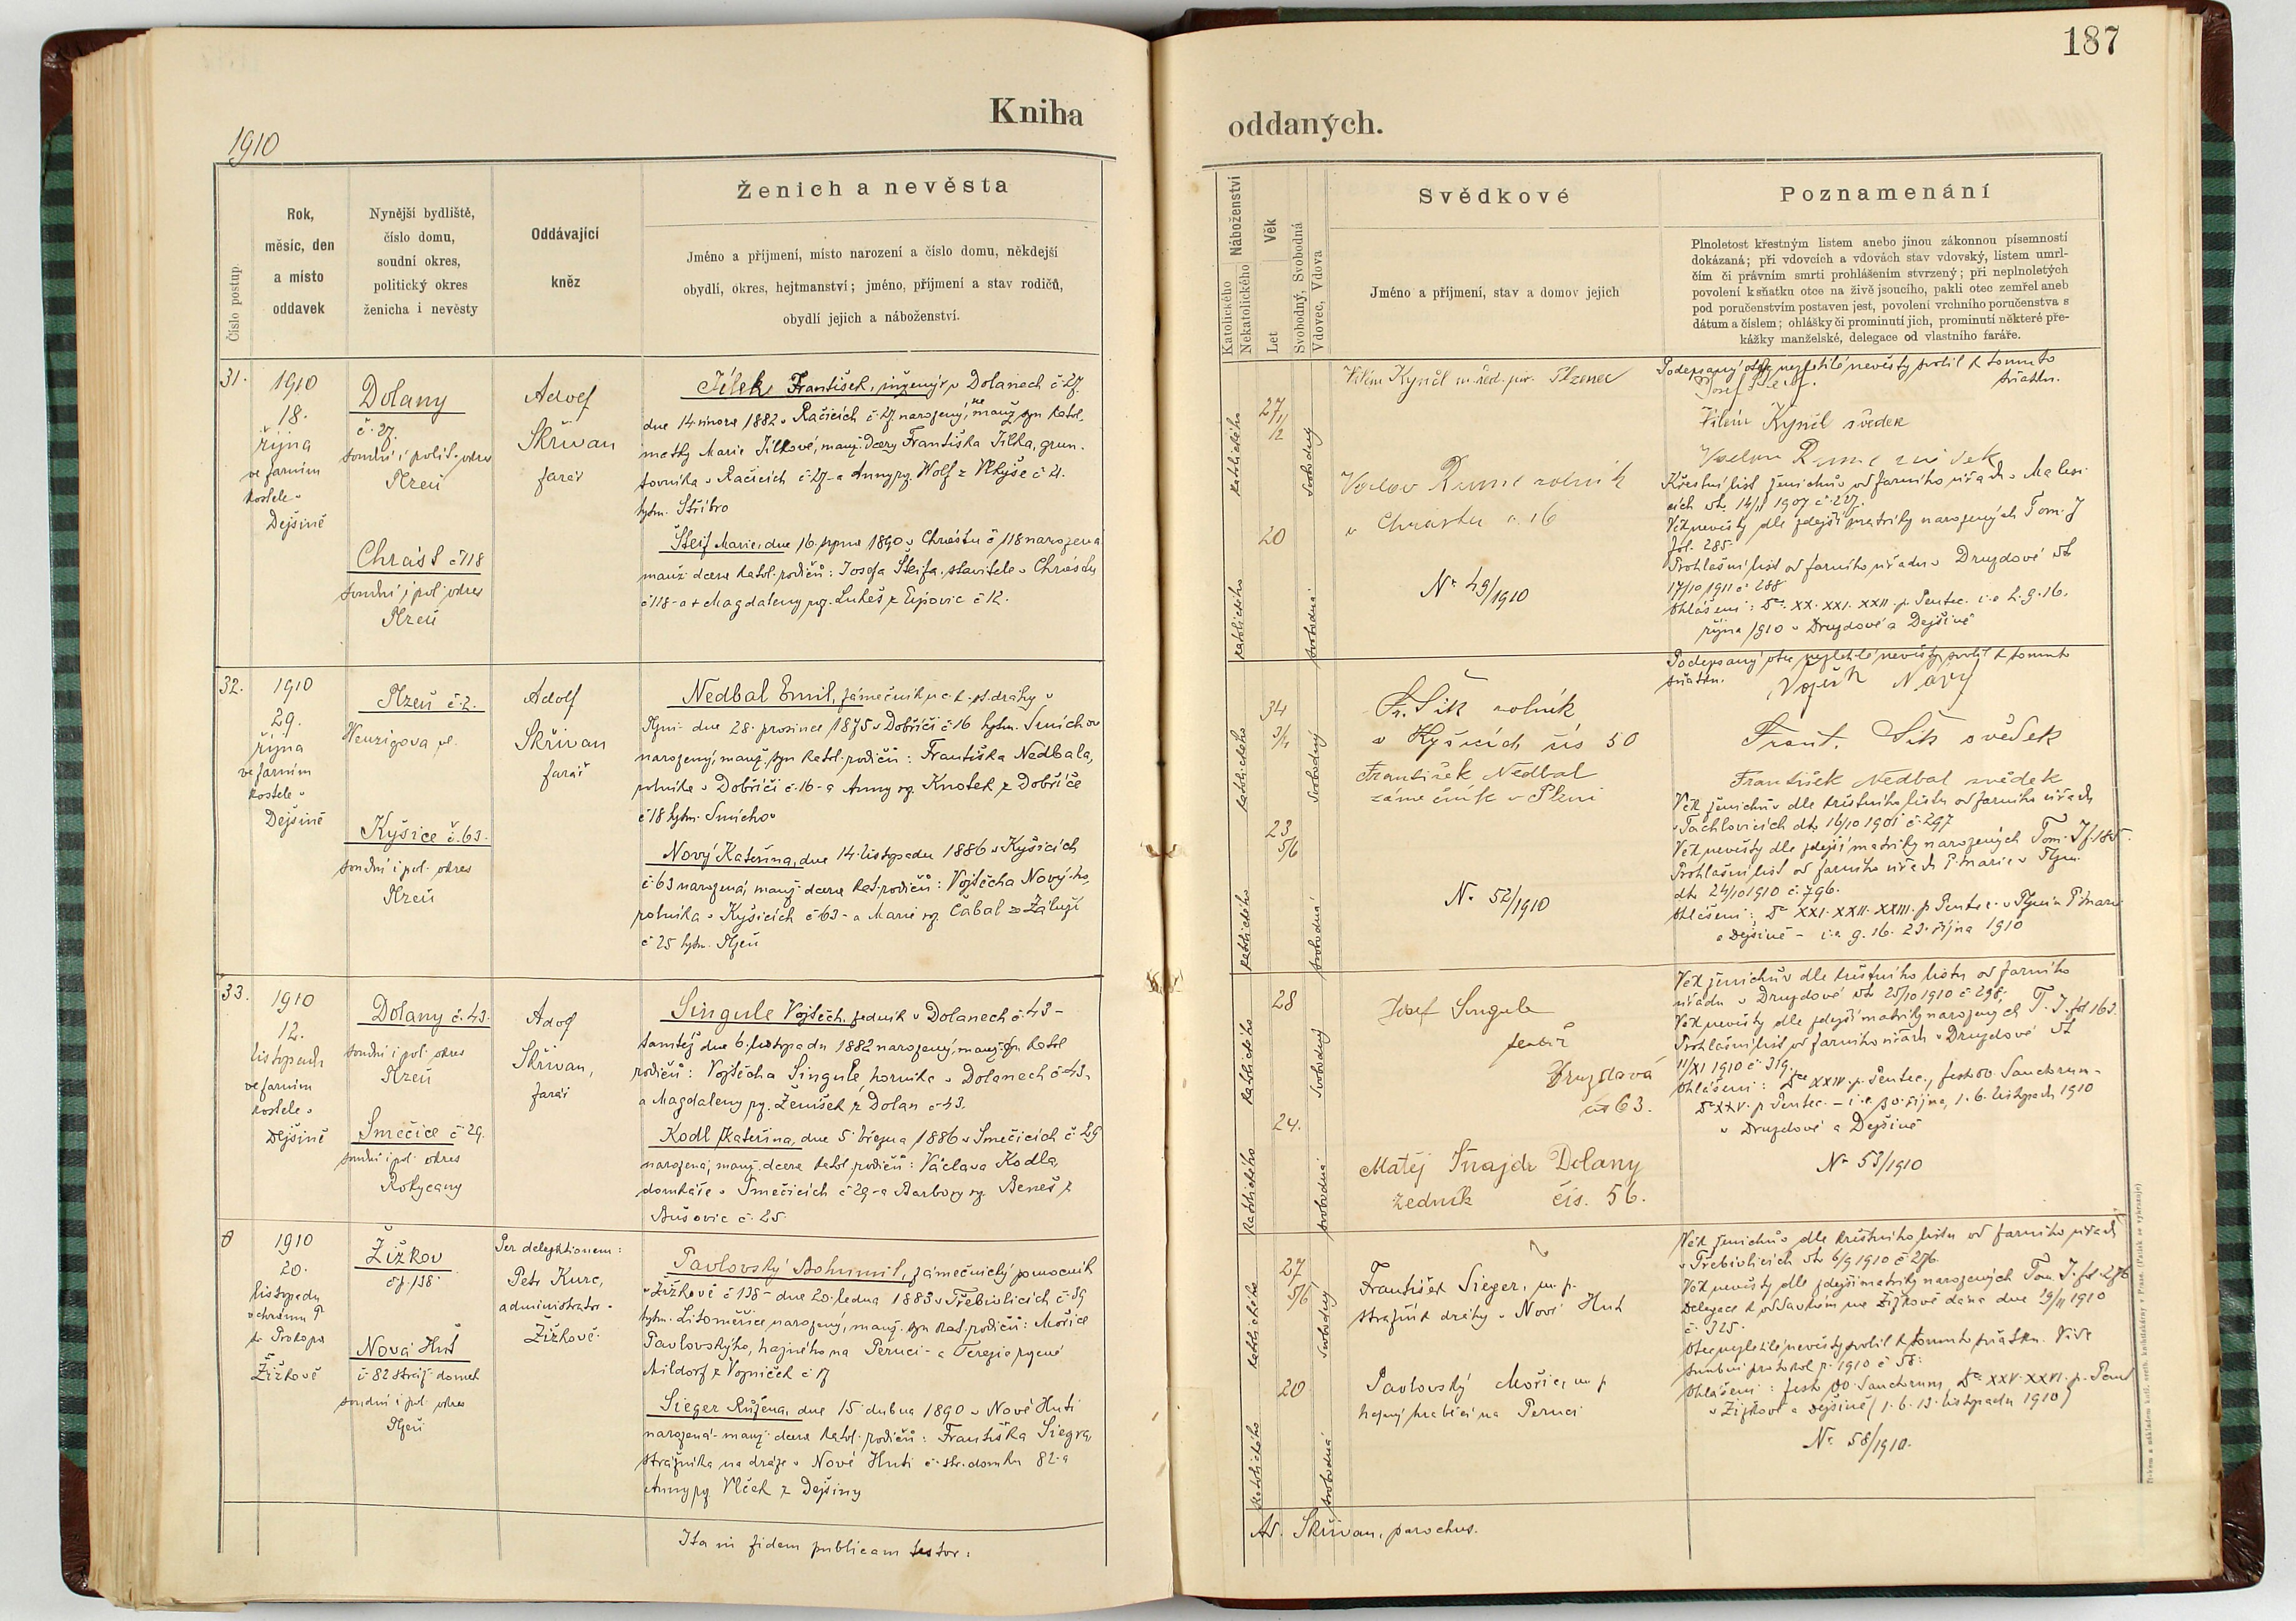 187
Kniha
oddaných.
1910
Číslo postup.
Rok,
měsíc, den
a místo
oddavek
Nynější bydliště,
číslo domu,
soudní okres,
politický okres
ženicha i nevěsty
Oddávající
kněz
Ženich a nevěsta
Jméno a příjmení, místo narození a číslo domu, někdejší
obydlí, okres, hejtmanství; jméno, příjmení a stav rodičů,
obydlí jejich a náboženství.
Náboženství
Katolického
Nekatolického
Věk
Let
Svobodný, Svobodná
Vdovec, Vdova
Svědkové
Jméno a příjmení, stav a domov jejich
Poznamenání
Plnoletost křestným listem anebo jinou zákonnou písemností
dokázaná; při vdovcích a vdovách stav vdovský, listem umrl-
čím či právním smrti prohlášením stvrzený; při neplnoletých
povolení k sňatku otce na živě jsoucího, pakli otec zemřel aneb
pod poručenstvím postaven jest, povolení vrchního poručenstva s
dátum a číslem; ohlášky či prominutí jich, prominutí některé pře-
kážky manželské, delegace od vlastního faráře.
31.
1910
18.
října
ve farním
kostele v
Dejšině
Dolany
č. 27.
soudní i polit. okres
Plzeň
Chrást č 118
soudní i pol. okres
Plzeň
Adolf
Skřivan
farář
Jílek František, inženýr v Dolanech č. 27.
dne 14. února 1882 v Račicích č. 27 narozený, nemanž. syn katol.
matky Marie Jílkové, manž. dcery Františka Jílka, grun-
tovníka v Račicích č 27 - a Anny roz. Wolf z Vlkýše č 21.
hejtm. Stříbro
Šteif Marie, dne 16. srpna 1890 v Chrástu č 118 narozená
manž. dcera katol. rodičů: Josefa Šteifa, stavitele v Chrástu
č 118 - a + Magdaleny roz. Lukeš z Ejpovic č 12.
katolického
katolického
27 11/12
20
svobodný
svobodná
Vilém Kynčl
Plzenec
Václav
rolník
v Chrástu č. 16
No 49/1910
Podepsaný otec nezletilé nevěsty svolil k tomuto
sňatku.
Josef Šteif.
Vilém Kynčl svědek
Křestní list ženichův od farního úřadu v Malesi-
cích dto 14/11 1907 č. 227.
Věk nevěsty dle zdejší matriky narozených Tom. I
fol. 285.
Prohlašní list od farního úřadu v Druzdové dto
17/10 1911 č 288
Ohlášení: Dca XX. XXI. XXII. p. Pentec. i.e. 2. 9. 16.
října 1910 v Druzdové a Dejšině
32.
1910
29.
října
ve farním
kostele v
Dejšině
Plzeň č. 2.
Wenzigova ul.
Kyšice č. 63.
soudní i pol. okres
Plzeň
Adolf
Skřivan
farář
Nedbal Emil, zámečník u c. k. st. dráhy v
Plzni dne 28. prosince 1875 v Dobříči č 16 hejtm. Smíchov
narozený, manž. syn katol. rodičů: Františka Nedbala,
rolníka v Dobříči č. 16 - a Anny roz. Knotek z Dobříče
č 18 hejtm. Smíchov
Nový Kateřina, dne 14. listopadu 1886 v Kyšicích
č. 63 narozená, manž. dcera kat. rodičů: Vojtěcha Nového,
rolníka v Kyšicích č 63 - a Marie roz. Čabal ze Záluží
č 25 hejtm. Plzeň
katolického
katolického
34 3/4
23 5/6
svobodný
svobodná
Fr. Šik rolník
v Kyšicích čís 50
František Nedbal
zámečník v Plzni
No 52/1910
Podepsaný otec nezletilé nevěsty svolil k tomuto
sňatku.
Vojtěch Nový
Frant. Šik svědek
František Nedbal svědek
Věk ženichův dle křestního listu od farního úřadu
v Tachlovicích dto 16/10 1901 č. 297
Věk nevěsty dle zdejší matriky narozených Tom. I f. 185.
Prohlašní list od farního úřadu P. Marie v Plzni
dto 24/10 1910 č. 796.
Ohlášení: Dca XXI. XXII. XXIII. p. Pentec. v Plzni u P. Marie
a Dejšině - i.e. 9. 16. 23. října 1910
33.
1910
12.
listopadu
ve farním
kostele v
Dejšině
Dolany č. 43.
soudní i pol. okres
Plzeň
Smečice č 29.
soudní i pol. okres
Rokycany
Adolf
Skřivan,
farář
Singule Vojtěch, zedník v Dolanech č. 43 -
tamtéž dne 6. listopadu 1882 narozený, manž. syn katol
rodičů: Vojtěcha Singule, horníka v Dolanech č 43.
a Magdaleny roz. Ženíšek z Dolan č 43.
Kodl Kateřina, dne 5. března 1886 v Smečicích č 29
narozená, manž. dcera katol. rodičů: Václava Kodla,
domkáře v Smečicích č 29 - a Barbory roz. Beneš z
Bušovic č. 25.
katolického
katolického
28
24.
svobodný
svobodná
Josef Singule
Druzdová
čís 63.
Matěj Šnajdr Dolany
zedník čís. 56.
Věk ženichův dle křestního listu od farního
úřadu v Druzdové dto 25/10 1910 č 298;
Věk nevěsty dle zdejší matriky narozených T. I. fol 163.
Prohlašní list od farního úřadu v Druzdové dto
11/XI 1910 č. 319.
Ohlášení: Dca XXIV. p. Pentec., fest. oo. Sanctorum -
Dca XXV. p. Pentec. - i.e. 30. října, 1. 6. listopadu 1910
v Druzdové a Dejšině
No 53/1910
1910
20.
listopadu
v chrámu P
sv. Prokopa
Žižkově
Žižkov
čp. 138.
Nová Huť
č. 82 stráž. domek
soudní i pol. okres
Plzeň
Per delegationem:
Petr Kurc,
administrátor
Žižkově.
Pavlovský Bohumil, zámečnický pomocník
v Žižkově č 138 - dne 20. ledna 1883 v Třebívlicích č 39
hejtm. Litoměřice narozený, manž. syn kat. rodičů: Mořice
Pavlovského, hajného na Peruci - a Terezie rozené
Mildorf z Vojniček č 17
Sieger Růžena, dne 15. dubna 1890 v Nové Huti
narozená - manž. dcera katol. rodičů: Františka Siegra,
strážníka na dráze v Nové Huti č. str. domku 82 - a
Anny roz. Vlček z Dejšiny
katolického
katolického
27 5/6
20
svobodný
svobodná
František Sieger, m. p.
strážník dráhy v Nové Huti
Pavlovský Mořic, m. p
hajný hraběcí na Peruci
Věk ženichův dle křestního listu od farního úřadu
v Třebívlicích dto 6/9 1910 č 276.
Věk nevěsty dle zdejší matriky narozených Tom. I. fol. 276
Delegace k oddavkám na Žižkově dána dne 19/11 1910
č. 325.
Otec nezletilé nevěsty svolil k tomuto sňatku. Vide
snubní protokol r. 1910 č 58.
Ohlášení: fest. oo. Sanctorum, Dca XXV. XXVI. p. Pent
v Žižkově a Dejšině (1. 6. 13. listopadu 1910)
No 58/1910.
Ita in fidem publicam testor:
Ad. Skřivan, parochus.